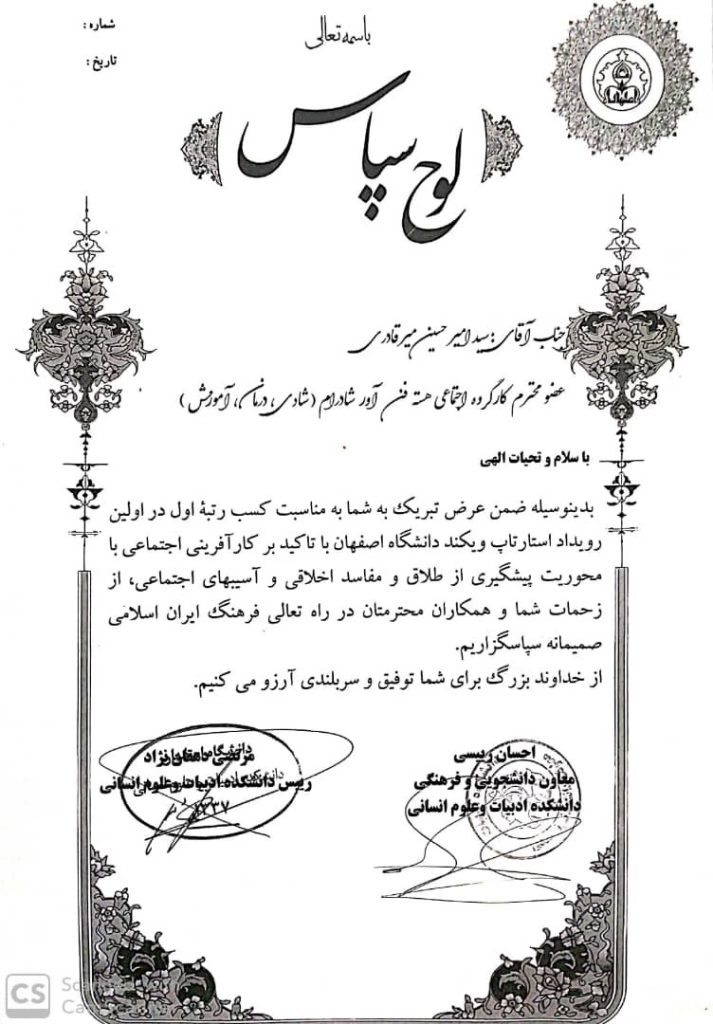 باسمه تعالی
شماره :
تاریخ :
اصفهان
لوح سپاس
جناب آقای : سید امیر حسین میرقادری
عضو محترم کارگروه اجتماعی هسته فن آور شادرام (شادی، درمان، آموزش)
با سلام و تحیات الهی
بدینوسیله ضمن عرض تبریک به شما به مناسبت کسب رتبۀ اول در اولین
رویداد استارتاپ ویکند دانشگاه اصفهان با تاکید بر کارآفرینی اجتماعی با
محوریت پیشگیری از طلاق و مفاسد اخلاقی و آسیبهای اجتماعی، از
زحمات شما و همکاران محترمتان در راه تعالی فرهنگ ایران اسلامی
صمیمانه سپاسگزاریم.
از خداوند بزرگ برای شما توفیق و سربلندی آرزو می کنیم.
احسان رییسی
معاون دانشجویی و فرهنگی
دانشکده ادبیات وعلوم انسانی
مرتضی دهقان نژاد
رییس دانشکده ادبیات وعلوم انسانی
۱۳۳۷
CS